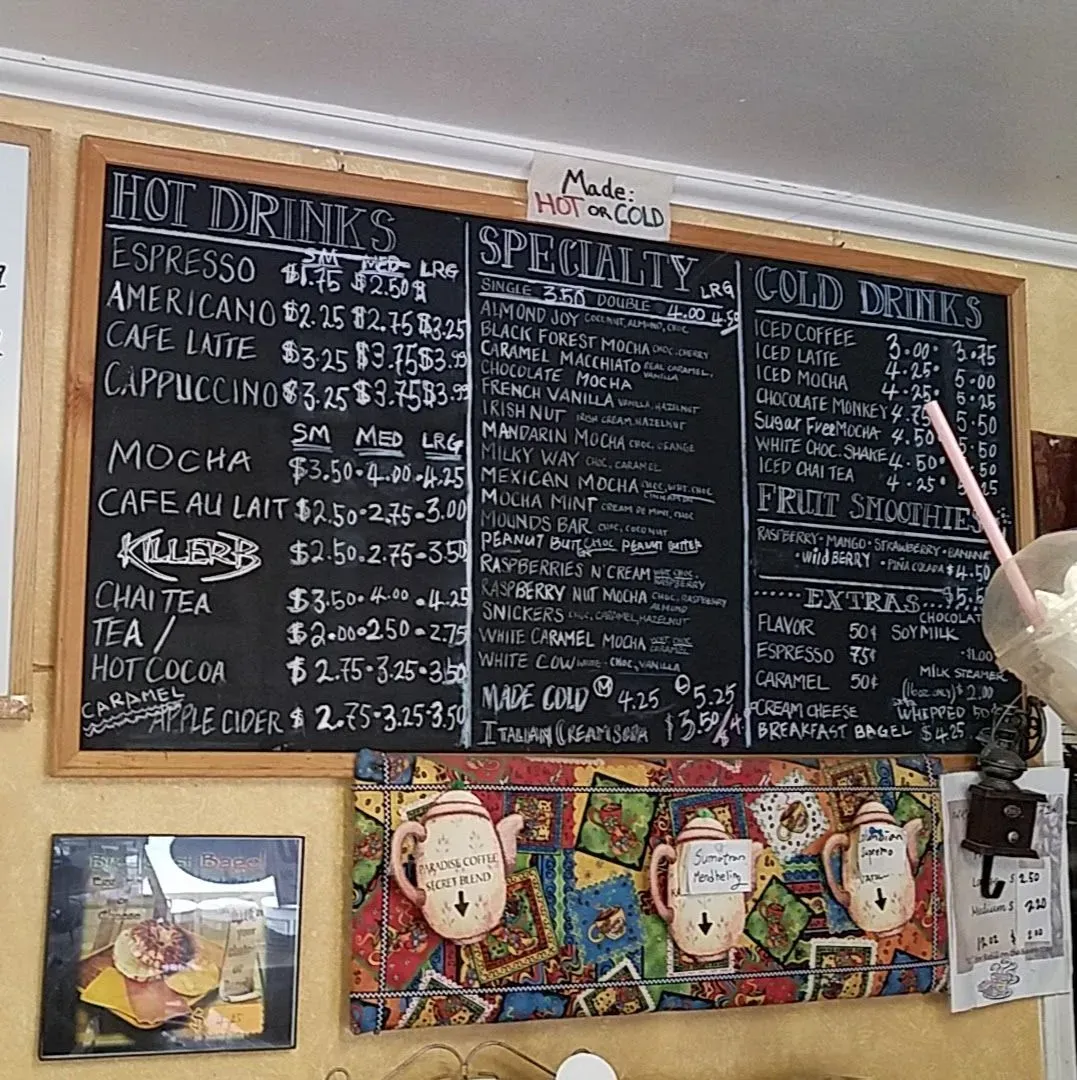 Made:
HOT OR COLD
HOT DRINKS
SM MED LRG
ESPRESSO $1.75 $2.50 $
AMERICANO $2.25 $2.75 $3.25
CAFE LATTE $3.25 $3.75 $3.99
CAPPUCCINO $3.25 $3.75 $3.99
SM MED LRG
MOCHA $3.50 - 4.00 - 4.25
CAFE AU LAIT $2.50 - 2.75 - 3.00
KILLER B $2.50 - 2.75 - 3.50
CHAI TEA $3.50 - 4.00 - 4.25
TEA / $2.00 - 2.50 - 2.75
HOT COCOA $2.75 - 3.25 - 3.50
CARAMEL
APPLE CIDER $2.75 - 3.25 - 3.50
SPECIALTY
LRG
SINGLE 3.50 DOUBLE 4.00 4.50
ALMOND JOY COCONUT, ALMOND, CHOC
BLACK FOREST MOCHA CHOC, CHERRY
CARAMEL MACCHIATO REAL CARAMEL, VANILLA
CHOCOLATE MOCHA
FRENCH VANILLA VANILLA, HAZELNUT
IRISH NUT IRISH CREAM, HAZELNUT
MANDARIN MOCHA CHOC, ORANGE
MILKY WAY CHOC, CARAMEL
MEXICAN MOCHA CHOC, WHT. CHOC CINNAMON
MOCHA MINT CREAM DE MINT, CHOC
MOUNDS BAR CHOC, COCONUT
PEANUT BUTT CHOC PEANUT BUTTER
RASPBERRIES N' CREAM WHT CHOC, RASPBERRY
RASPBERRY NUT MOCHA CHOC, RASPBERRY ALMOND
SNICKERS CHOC, CARAMEL, HAZELNUT
WHITE CARAMEL MOCHA WHT. CHOC CARAMEL
WHITE COW WHITE - CHOC, VANILLA
MADE COLD M 4.25 L 5.25
ITALIAN CREAM SODA $3.50/
COLD DRINKS
ICED COFFEE 3.00 3.75
ICED LATTE 4.25 5.00
ICED MOCHA 4.25 5.25
CHOCOLATE MONKEY 4.75 5.50
Sugar Free MOCHA 4.50 5.50
WHITE CHOC. SHAKE 4.50
ICED CHAI TEA 4.25
FRUIT SMOOTHIES
RASPBERRY • MANGO • STRAWBERRY • BANANA
• Wild BERRY • PIÑA COLADA $4.50
EXTRAS
FLAVOR 50¢ SOY MILK
ESPRESSO 75¢ $1.00
MILK STEAMER
CARAMEL 50¢ $2.00
CREAM CHEESE WHIPPED 50¢
BREAKFAST BAGEL $4.25
PARADISE COFFEE
SECRET BLEND
Sumatran
Mendheling
Supremo
Bagel
$ 2.50
Medium $ 2.20
12 oz $ 2.00